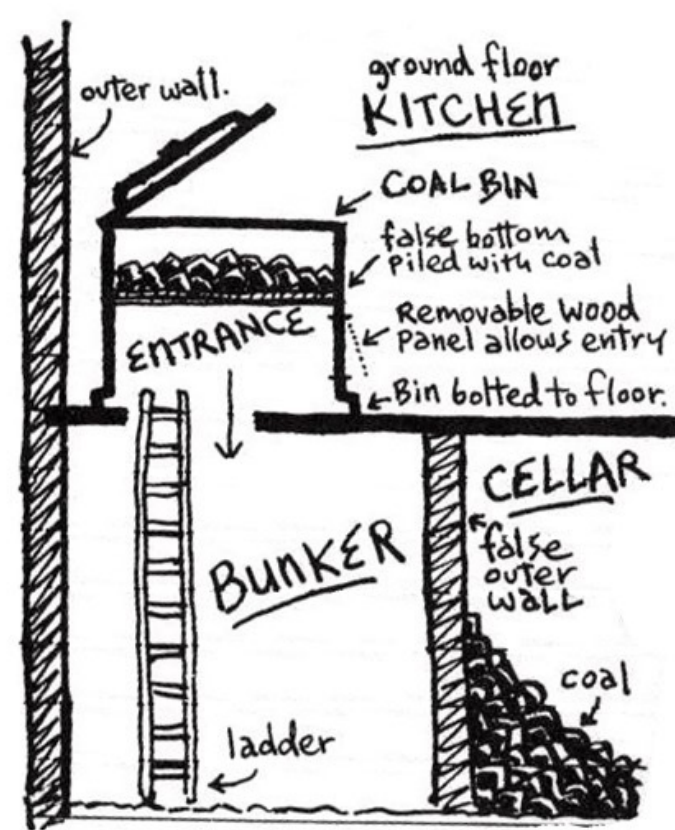 outer wall.
ground floor
KITCHEN
COAL BIN
false bottom
Piled with coal
Removable Wood
Panel allows entry
ENTRANCE
Bin bolted to floor.
CELLAR
false
outer
WALL
BUNKER
coal
ladder